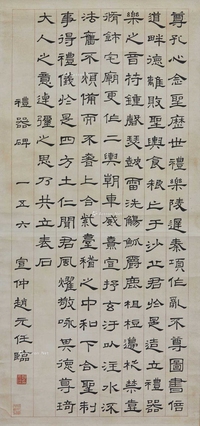 尊孔心念聖歷世禮樂陵遲秦項作亂不尊圖書倍
道畔德離敗聖輿食糧亡于沙丘君於是造立禮器
樂之音符鍾磬瑟鼓雷洗觴觚爵鹿柤梪籩柉禁壺
脩飾宅廟更作二輿朝車威熹宣抒玄汙以注水流
法舊不煩備而不奢上合紫臺稽之中和下合聖制
事得禮儀於是四方士仁聞君風燿敬咏其德尊琦
大人之意逴彌之思乃共立表石
禮器碑 一五六 宣仲趙元任臨